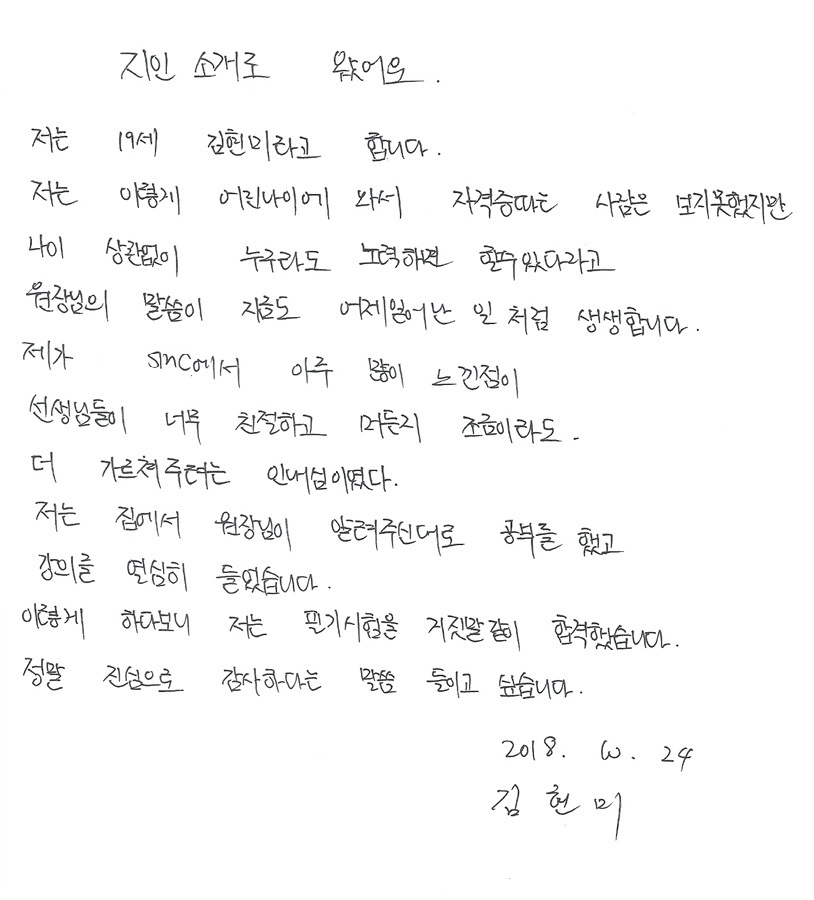 지인 소개로 왔어요.
저는 19세 김현미라고 합니다.
저는 이렇게 어린나이에 와서 자격증따는 사람은 보지못했지만
나이 상관없이 누구라도 노력하면 할수있다라고
원장님의 말씀이 지금도 어제일어난 일처럼 생생합니다.
제가 smc에서 아주 많이 느낀점이
선생님들이 너무 친절하고 머든지 조금이라도.
더 가르쳐주려는 인내심이였다.
저는 집에서 원장님이 알려주신대로 공부를 했고
강의를 열심히 들었습니다.
이렇게 하다보니 저는 필기시험을 거짓말같이 합격했습니다.
정말 진심으로 감사하다는 말씀 들이고 싶습니다.
2018. 24
김현미